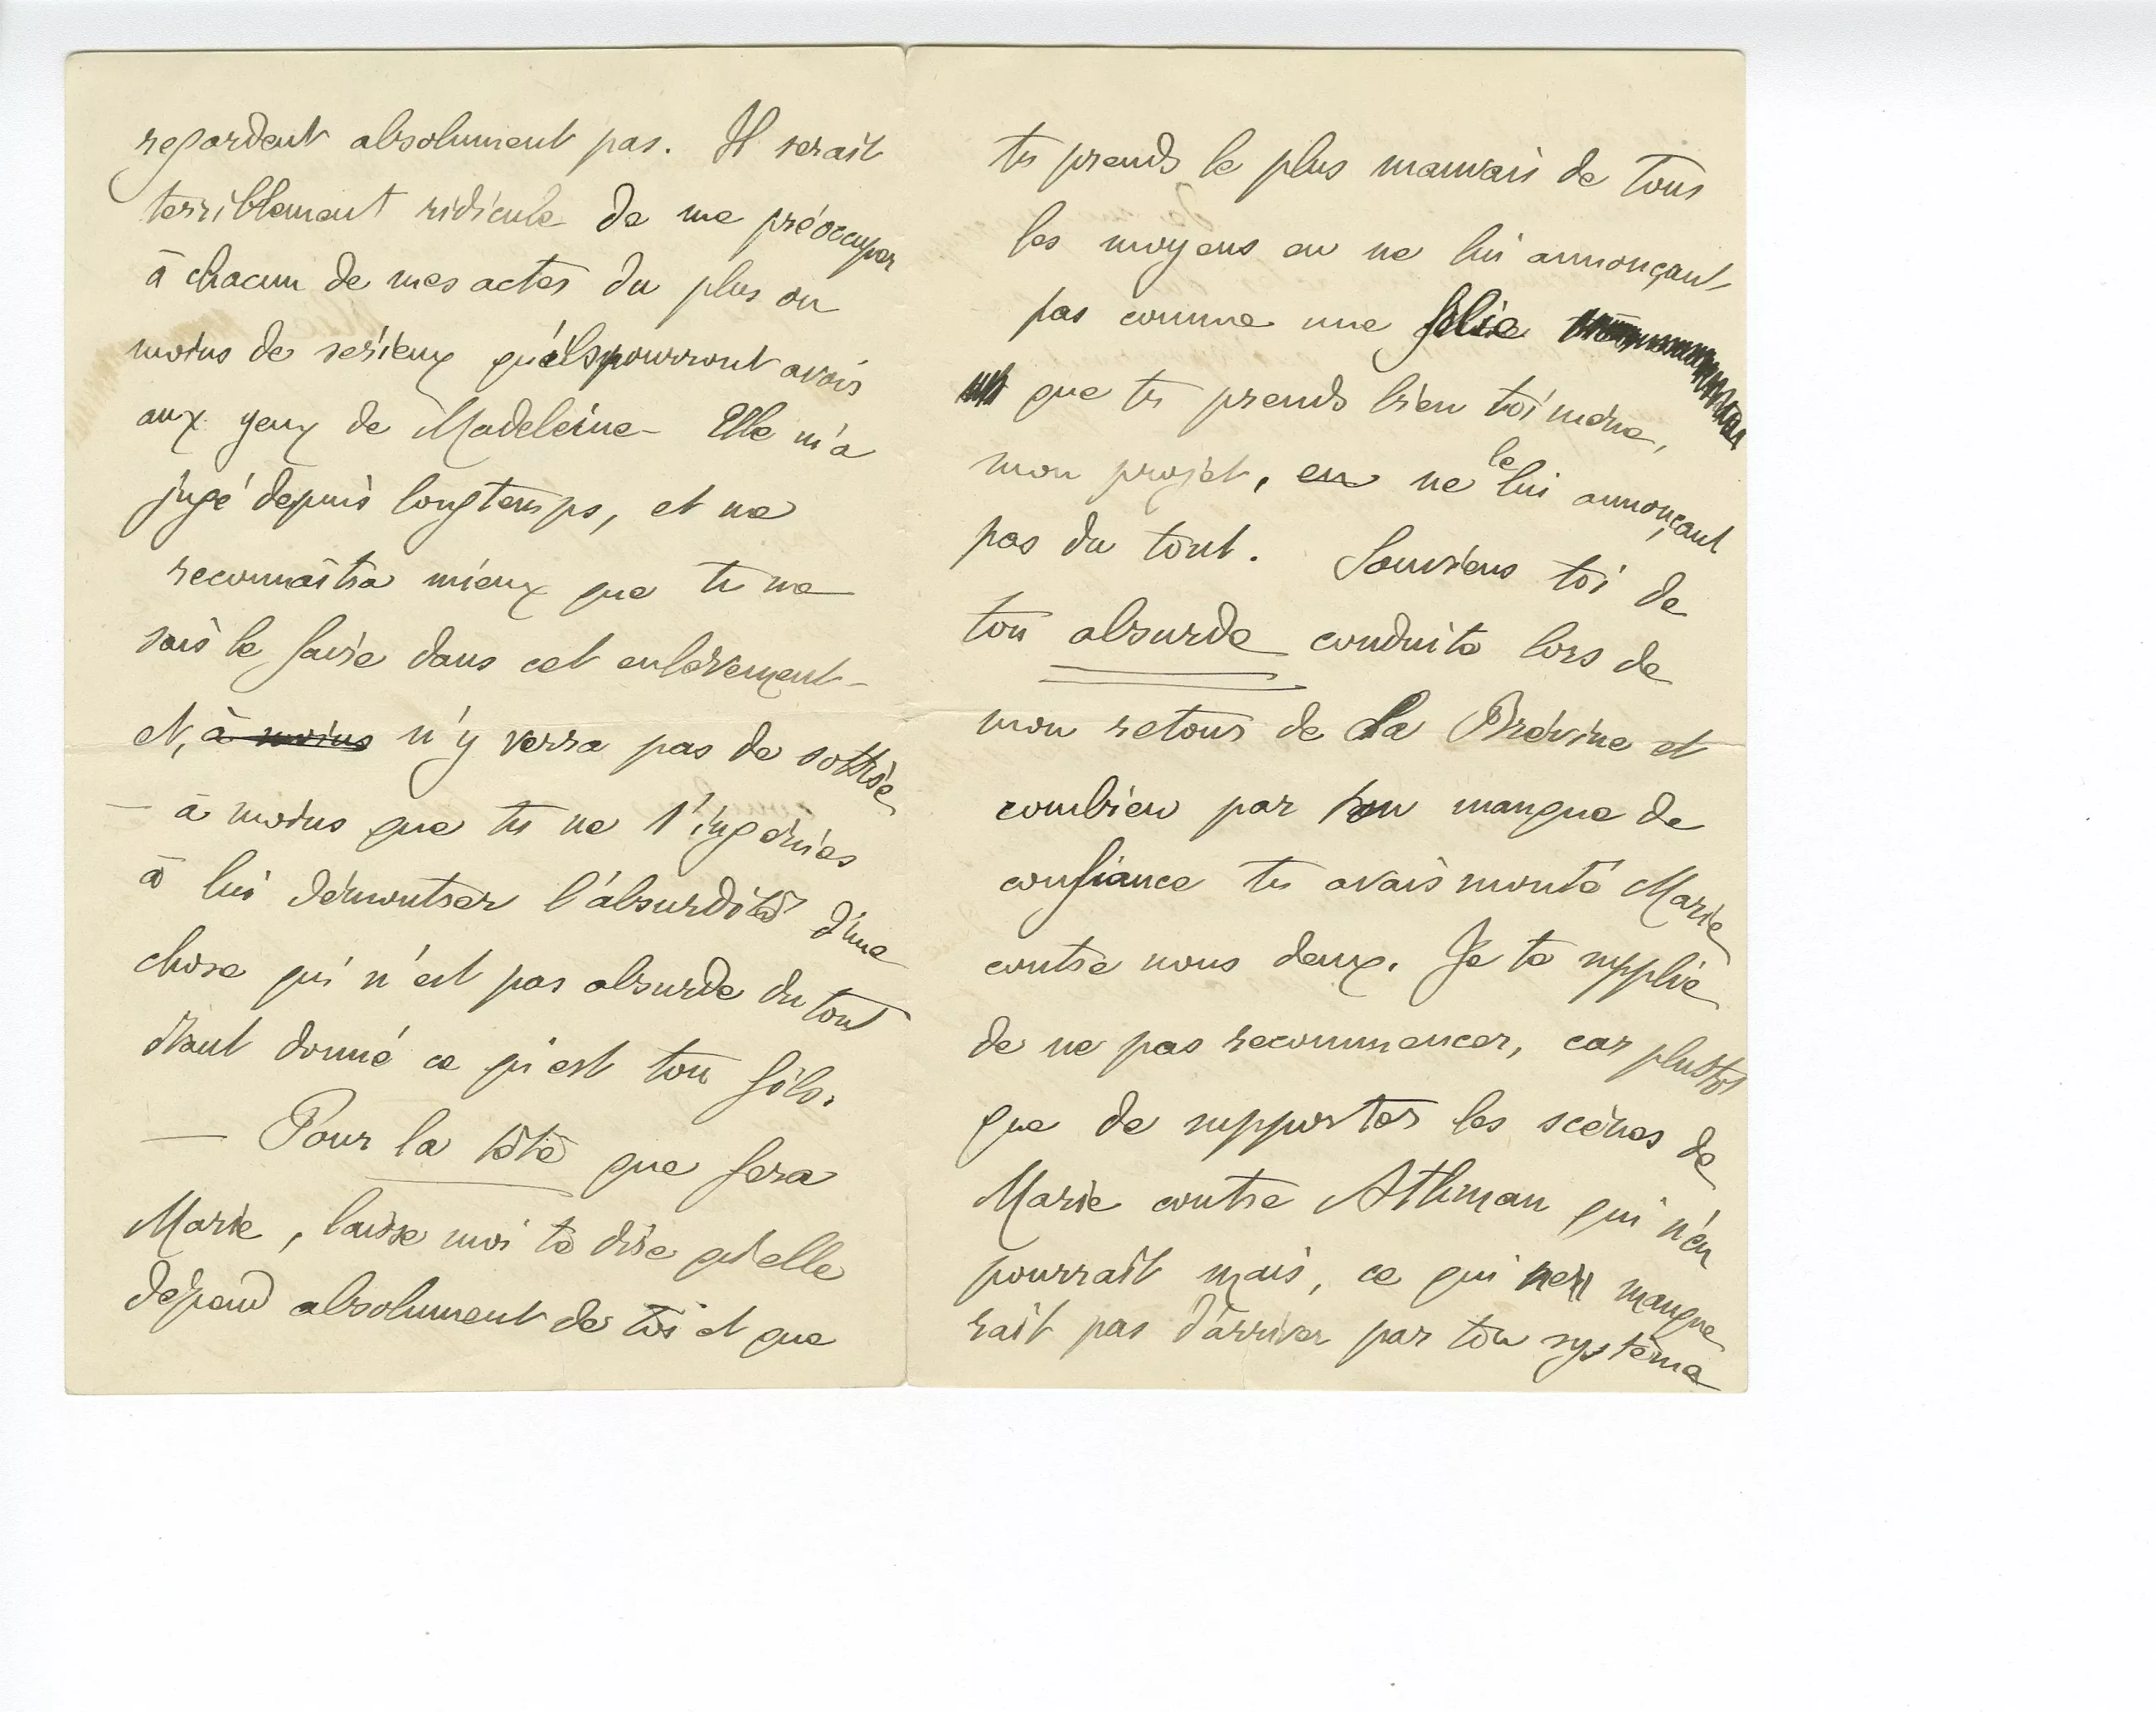 regardent absolument pas. Il serait
terriblement ridicule de me préoccuper
à chacun de mes actes du plus ou
moins de sérieux qu'ils pourront avoir
aux yeux de Madeleine – Elle m'a
jugé depuis longtemps, et me
reconnaîtra mieux que tu ne
sais le faire dans cet enlèvement –
et, à moins n'y verra pas de sottise
– à moins que tu ne t'ingénies
à lui démontrer l'absurdité d'une
chose qui n'est pas absurde du tout
étant donné ce qu'est ton fils.
— Pour la tête que fera
Marie, laisse moi te dire qu'elle
dépend absolument de toi et que
tu prends le plus mauvais de tous
les moyens en ne lui annonçant
pas comme une folie
que tu prends bien toi même,
mon projet, en ne le lui annonçant
pas du tout. Souviens toi de
ton absurde conduite lors de
mon retour de La Brévine et
combien par ton manque de
confiance tu avais monté Marie
contre nous deux. Je te supplie
de ne pas recommencer, car plustot
que de supporter les scènes de
Marie contre Athman qui n'en
pourrait mais, ce qui ne manque
rait pas d'arriver par ton système